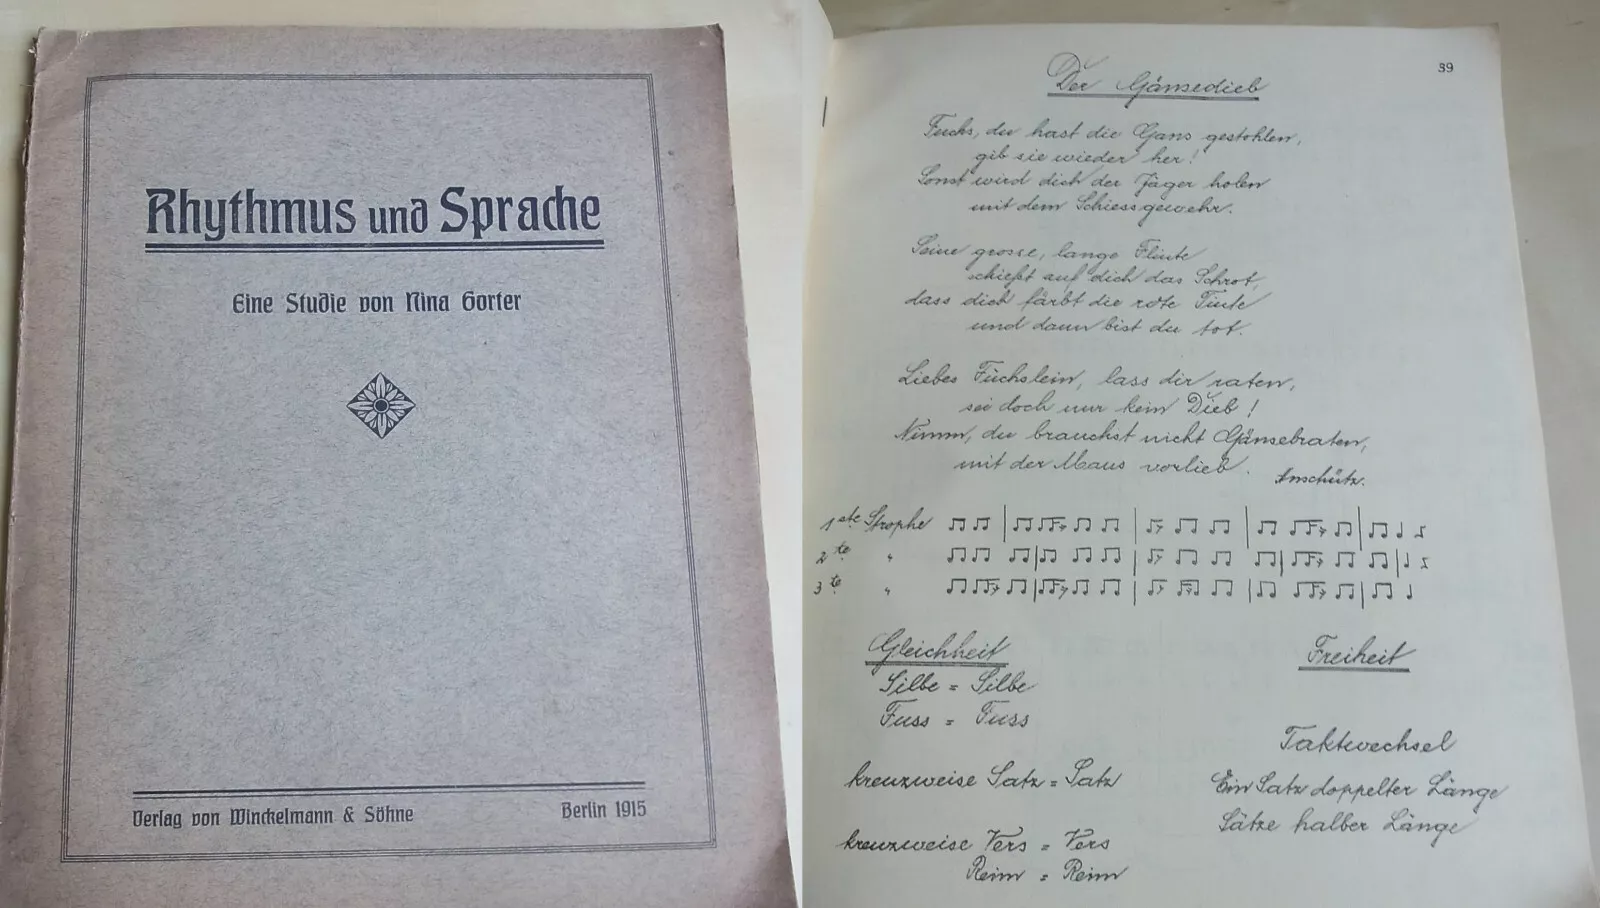 Rhythmus und Sprache
Eine Studie von Nina Gorter
Verlag von Winckelmann & Söhne
Berlin 1915
39
Der Gänsedieb
Fuchs, du hast die Gans gestohlen,
gib sie wieder her!
Sonst wird dich der Jäger holen
mit dem Schiessgewehr.
Seine grosse, lange Flinte
schießt auf dich das Schrot,
dass dich färbt die rote Tinte
und dann bist du tot.
Liebes Füchslein, lass dir raten,
sei doch nur kein Dieb!
Nimm, du brauchst nicht Gänsebraten,
mit der Maus vorlieb.
Anschütz.
1ste Strophe
2te "
3te "
Gleichheit
Silbe = Silbe
Fuss = Fuss
kreuzweise Satz = Satz
kreuzweise Vers = Vers
Reim = Reim
Freiheit
Taktwechsel
Ein Satz doppelter Länge
Sätze halber Länge